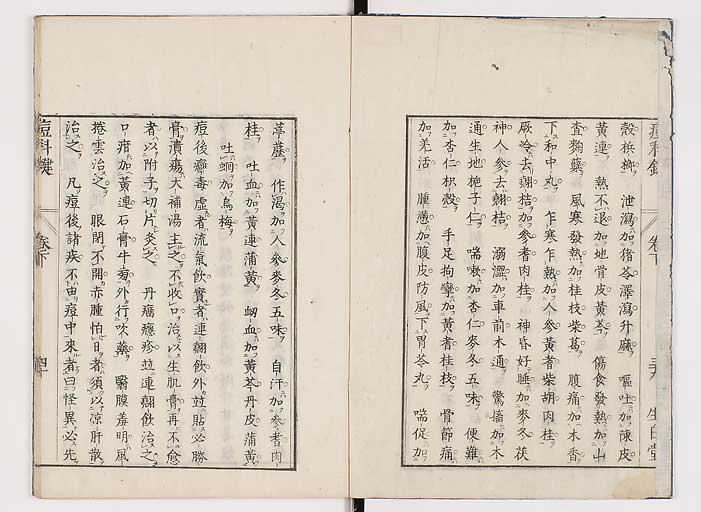 殻梹榔 泄瀉加猪苓澤瀉升麻 嘔吐加陳皮
黄連 熱不退加地骨皮黄芩 傷食發熱加山
査麴糵 風寒發熱加桂枝柴葛 腹痛加木香
下和中丸 乍寒乍熱加人參黄耆柴胡肉桂
厥冷去翹桔加參耆肉桂 神昏好睡加麥冬茯
神人參去翹桔 溺澀加車前木通 驚搐加木
通生地梔子仁 喘嗽加杏仁麥冬五味 便難
加杏仁枳殻 手足拘攣加黄耆桂枝 骨節痛
加羌活 腫懣加腹皮防風下胃苓丸 喘促加
葶藶 作渇加人參麥冬五味 自汗加參耆肉
桂 吐血加黄連蒲黄 衂血加黄芩丹皮蒲黄
吐蛔加烏梅
痘後癰毒虚者流氣飲實者連翹飲外竝貼必勝
膏潰瘍大補湯主之不收口治以生肌膏再不愈
者以附子切片灸之 丹瘤癮疹竝連翹飲治之
口疳加黄連石膏牛蒡外行吹藥 翳膜羞明風
捲雲治之 眼閉不開赤腫怕日者須以凉肝散
治之 凡痘後諸疾不由痘中來者曰怪異必先
痘科鍵 卷下
生白堂